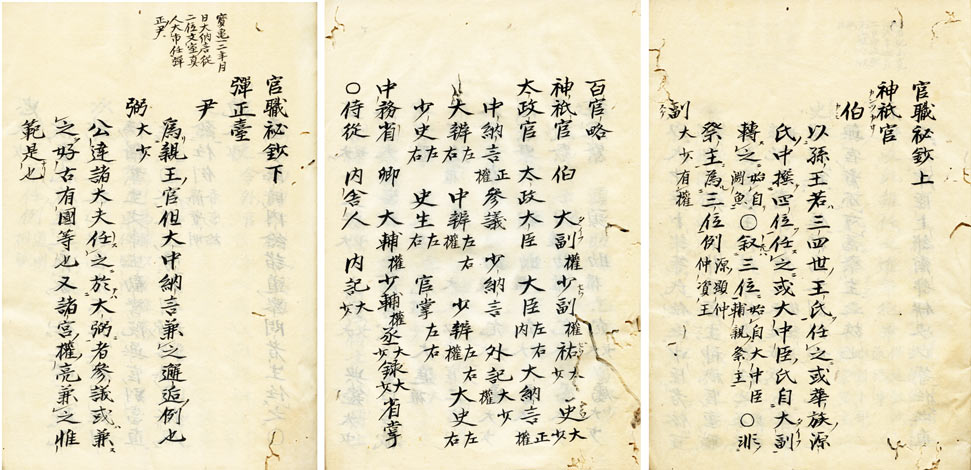 官職祕鈔上
神祇官
伯
以孫王若三四世王氏任之或華族源
氏中撰四位任之或大中臣氏自大副
轉之始自淵魚〇叙三位始自大中臣輔親祭主〇非
祭主為三位例源顯仲仲資王
副大少有權
百官略
神祇官 伯 大副權 少副權 祐大少 史大少
太政官 太政大臣 大臣左右内 大納言正權
中納言正權 參議 少納言 外記大少權
大辨左右 中辨左右權 少辨左右權 大史左右
少史左右 史生左右 官掌左右
中務省 卿 大輔權 少輔權 丞大少 録大少 省掌
〇侍從 内舍人 内記大少
寶亀十二年月
日大納言從
二位文室真
人大市任彈
正尹
官職祕鈔下
彈正臺
尹
爲親王官但大中納言兼之邂逅例也
弼大少
公達諸大夫任之於大弼者參議或兼
之好古有國等也又諸宮權亮兼之惟
範是也